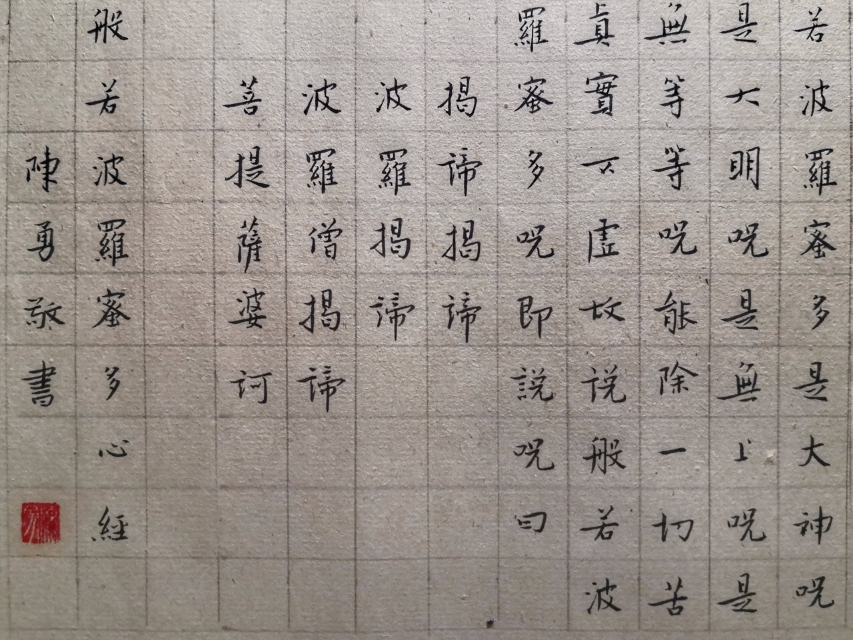 若波羅蜜多是大神呪
是大明呪是無上呪是
無等等呪能除一切苦
真實不虛故说般若波
羅蜜多呪即說呪曰
揭諦揭諦
波羅揭諦
波羅僧揭諦
菩提薩婆訶
般若波羅蜜多心經
陳勇敬書